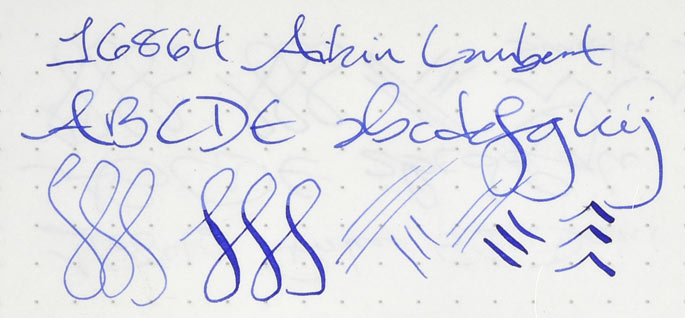 16864 Aikin Lambert
ABCDE abcdefghij